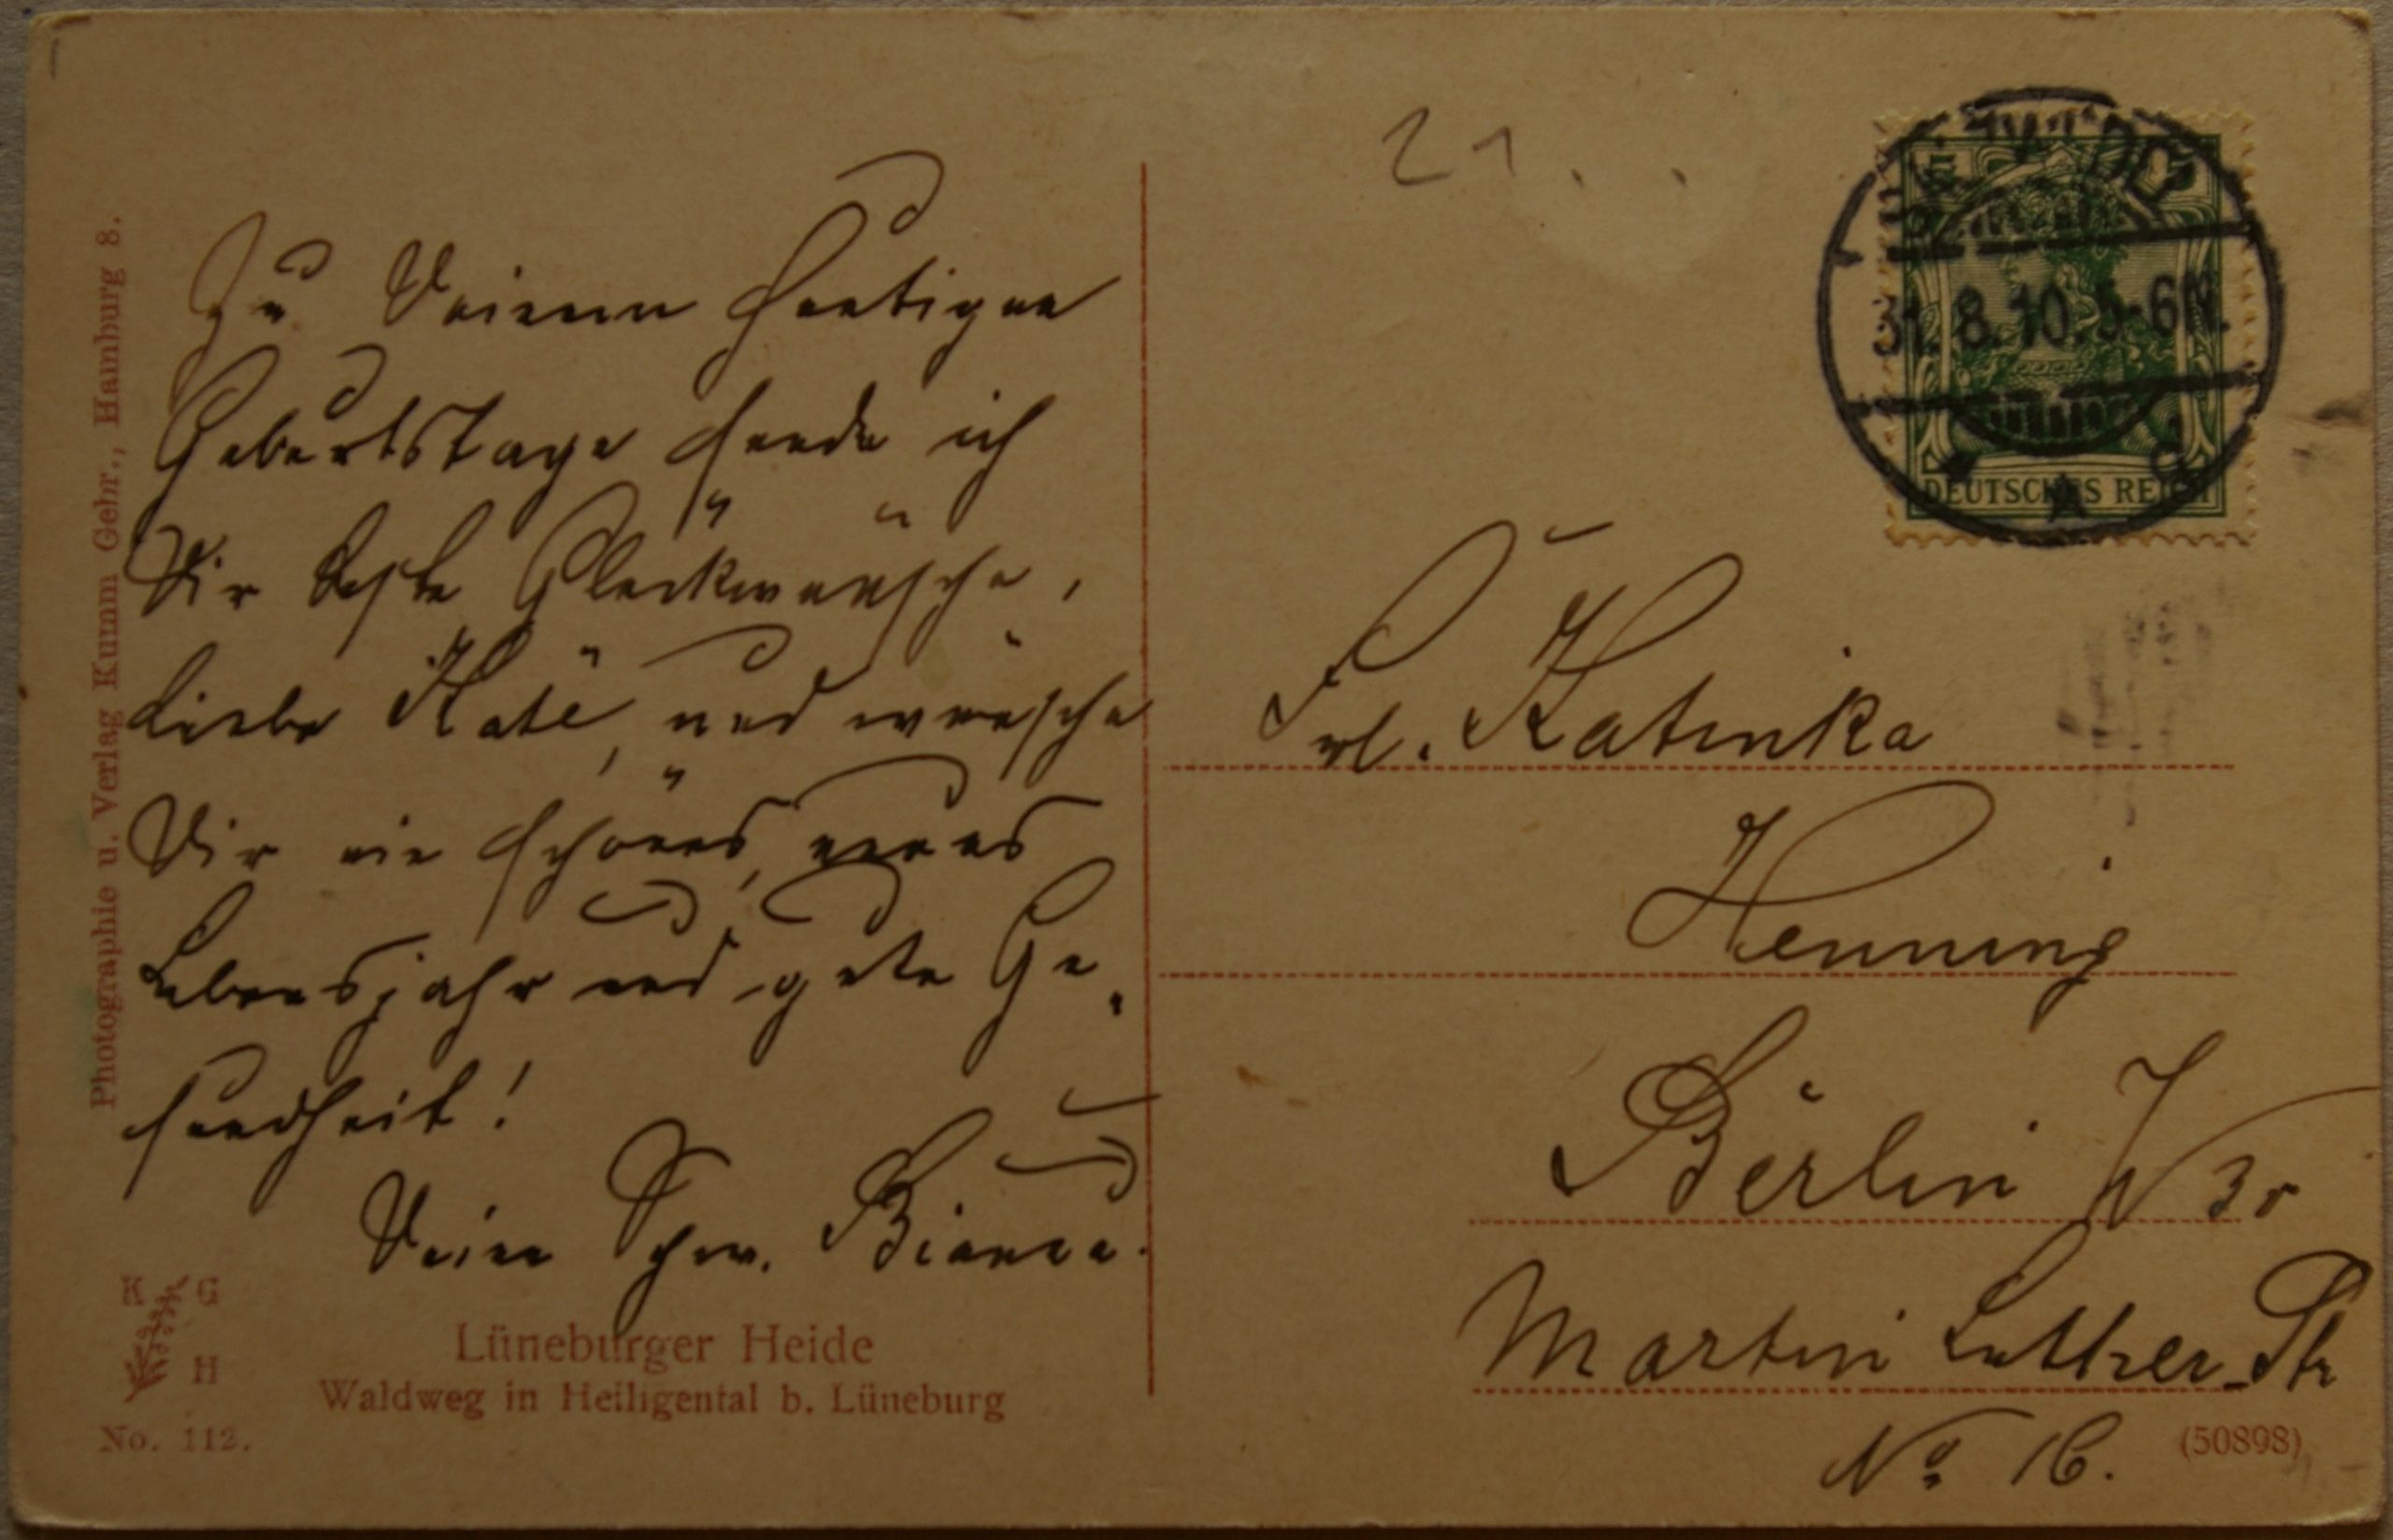 Zu Deinem heutigen
Geburtstage sende ich
Dir beste Glückwünsche,
liebe Käte, und wünsche
Dir ein schönes, neues
Lebensjahr und gute Ge-
sundheit!
Deine Schw. Bianca.
Photographie u. Verlag Kumm Gebr., Hamburg 8.
K G
H
No. 112.
Lüneburger Heide
Waldweg in Heiligental b. Lüneburg
21
31.8.10.5-6N.
DEUTSCHES REICH
Frl. Katinka
Henning
Berlin W 30
Martin Luther-Str
No 16.
(50898)